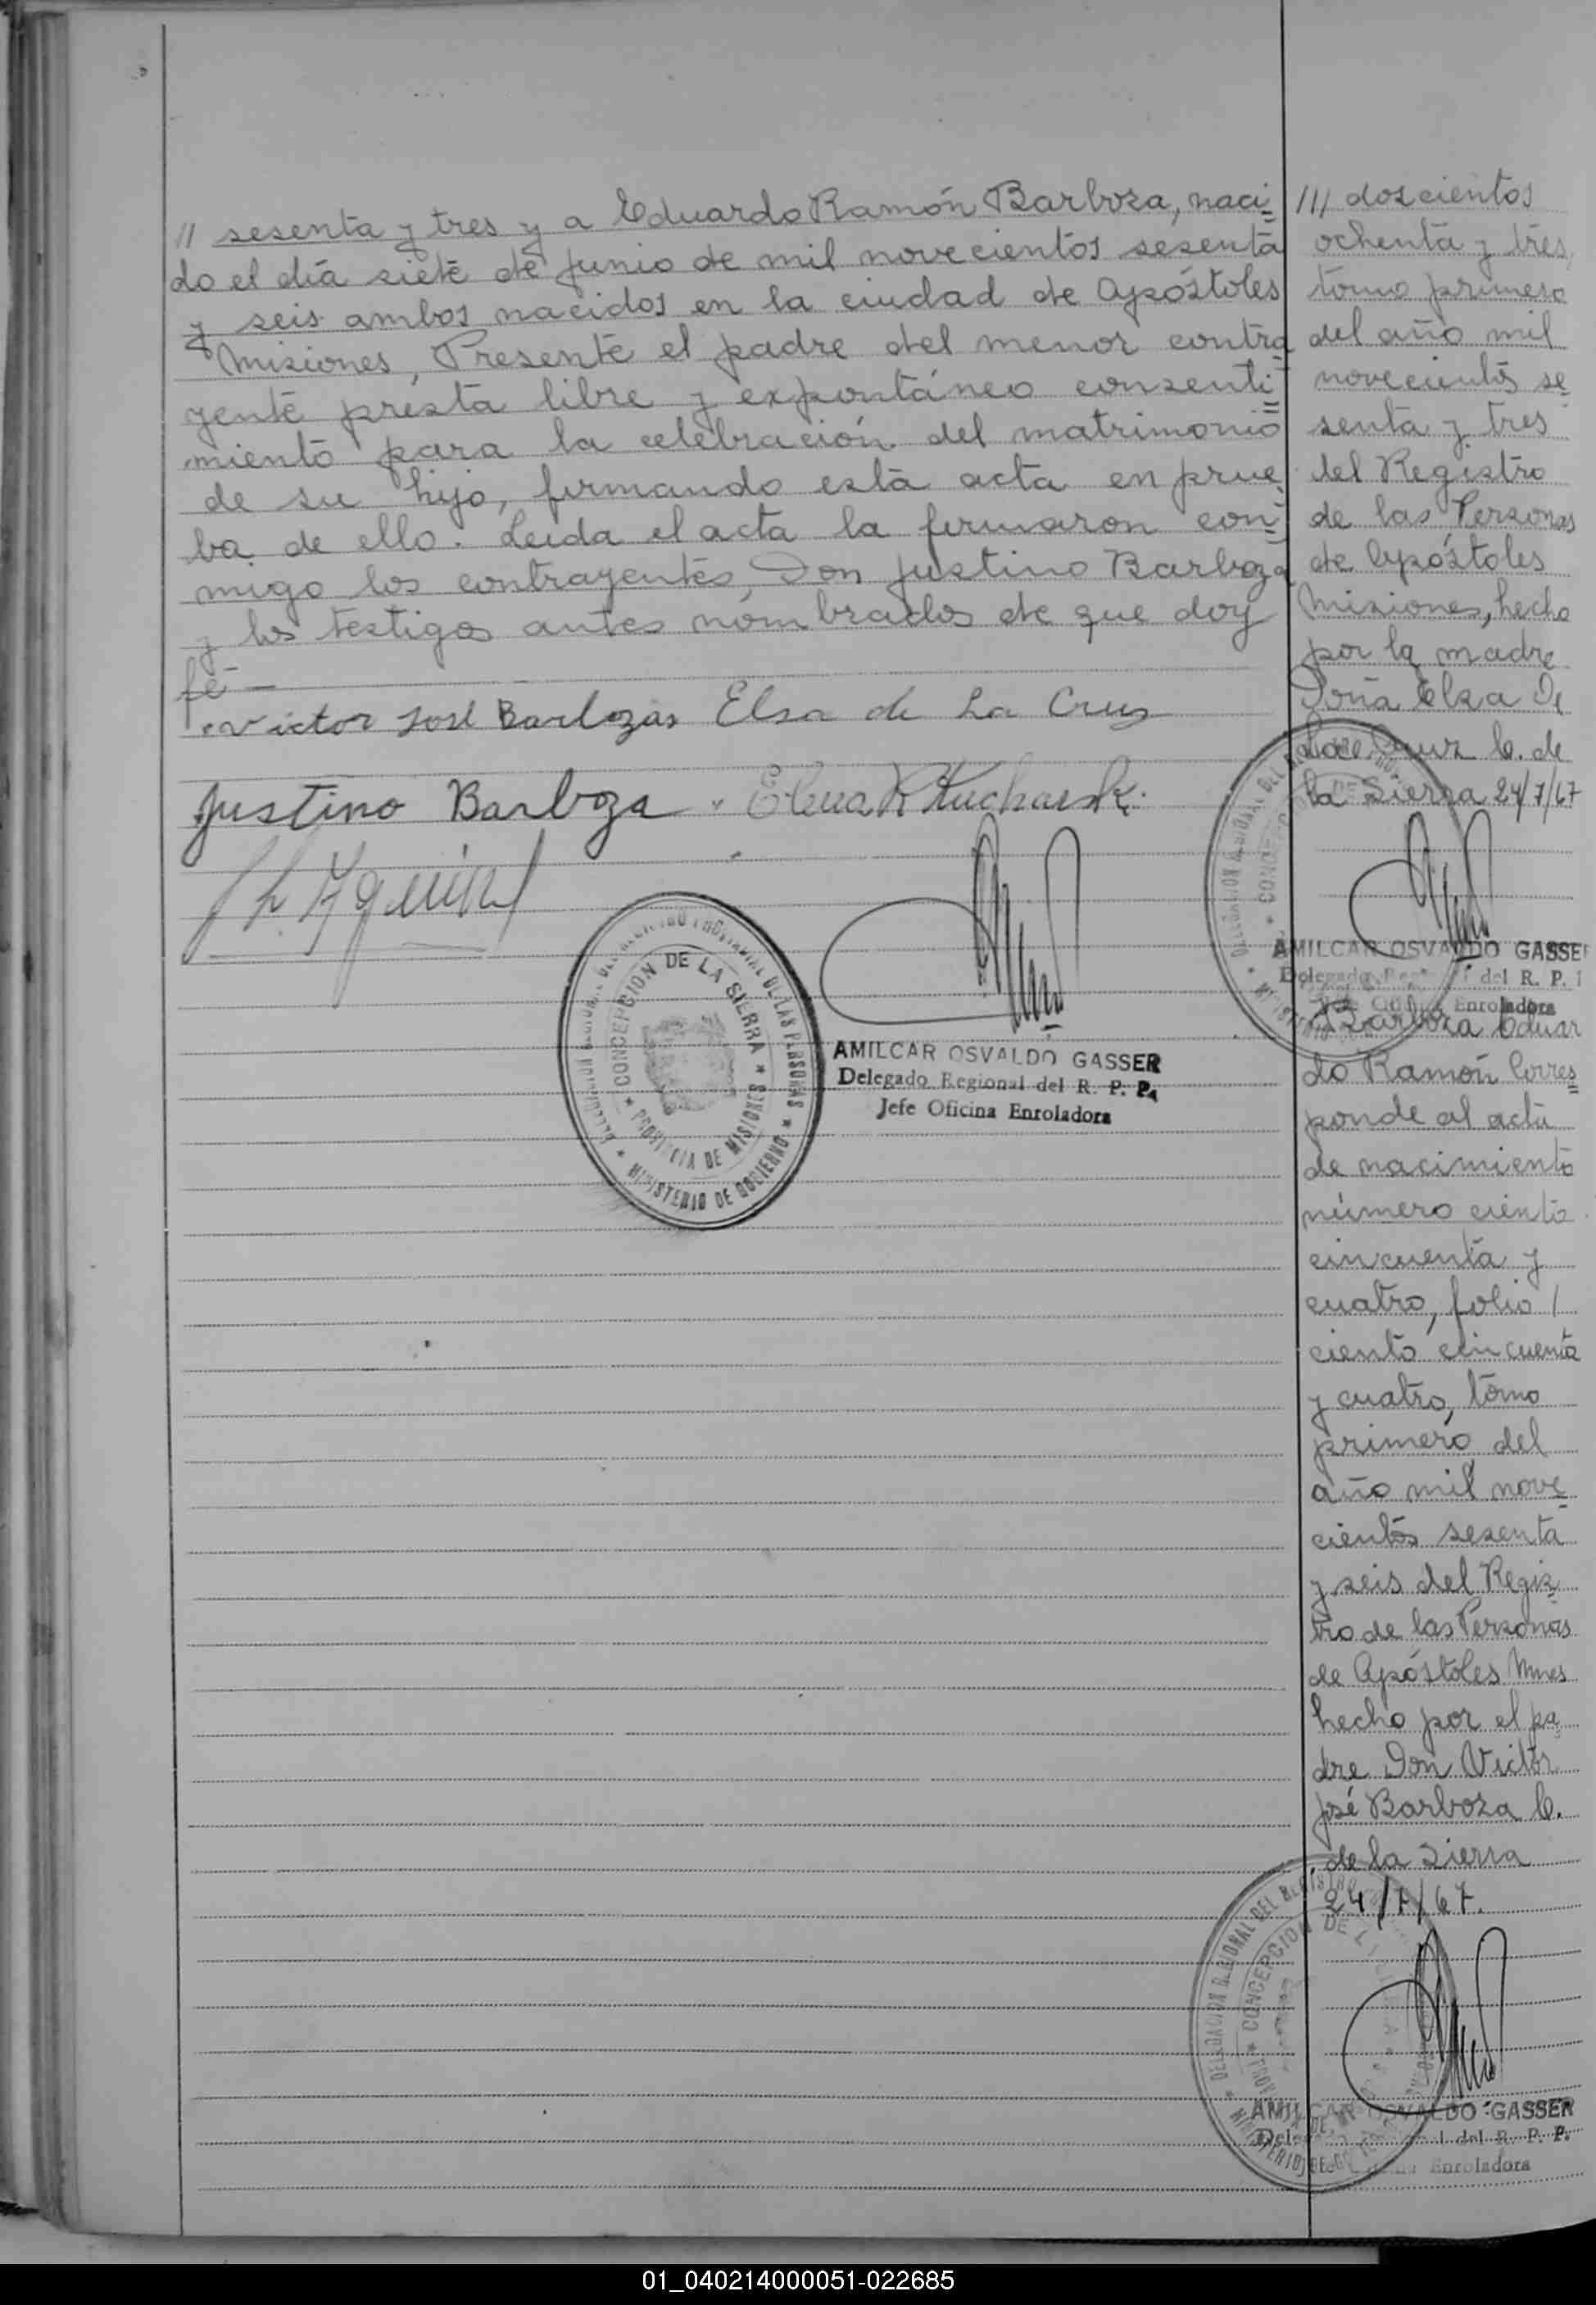 // sesenta y tres y a Eduardo Ramón Barboza, naci=
do el día siete de junio de mil novecientos sesenta
y seis ambos nacidos en la ciudad de Apóstoles
Misiones, Presente el padre del menor contra
yente presta libre y expontáneo consenti=
miento para la celebración del matrimonio
de su hijo, firmando esta acta en prue=
ba de ello. Leida el acta la firmaron con=
migo los contrayentes, Don Justino Barboza
y los testigos antes nombrados de que doy
fé —
Victor José Barbozas Elsa de La Cruz
Justino Barboza Elena K Kucharski
AMILCAR OSVALDO GASSER
Delegado Regional del R. P. P.
Jefe Oficina Enroladora
CONCEPCION DE LA SIERRA * PROVINCIA DE MISIONES *
DE LAS PERSONAS * MINISTERIO DE GOBIERNO *
/// doscientos
ochenta y tres,
tomo primero
del año mil
novecientos se=
senta y tres
del Registro
de las Personas
de Apóstoles
Misiones, hecho
por la madre
Doña Elsa De
La Cruz C. de
la Sierra 24/7/67
AMILCAR OSVALDO GASSE
Delegado del R. P.
Enroladora
Barboza Eduar
do Ramón Corres=
ponde al acta
de nacimiento
número ciento
cincuenta y
cuatro, folio /
ciento cincuenta
y cuatro, tomo
primero del
año mil nove=
cientos sesenta
y seis del Regis=
tro de las Personas
de Apóstoles Mnes
hecho por el pa=
dre Don Victor
José Barboza C.
de la Sierra
24/7/67.
DELEGACION REGIONAL DEL REGISTRO
CONCEPCION DE LA
AMILCAR OSVALDO GASSER
del R. P. P.
Enroladora
01_040214000051-022685